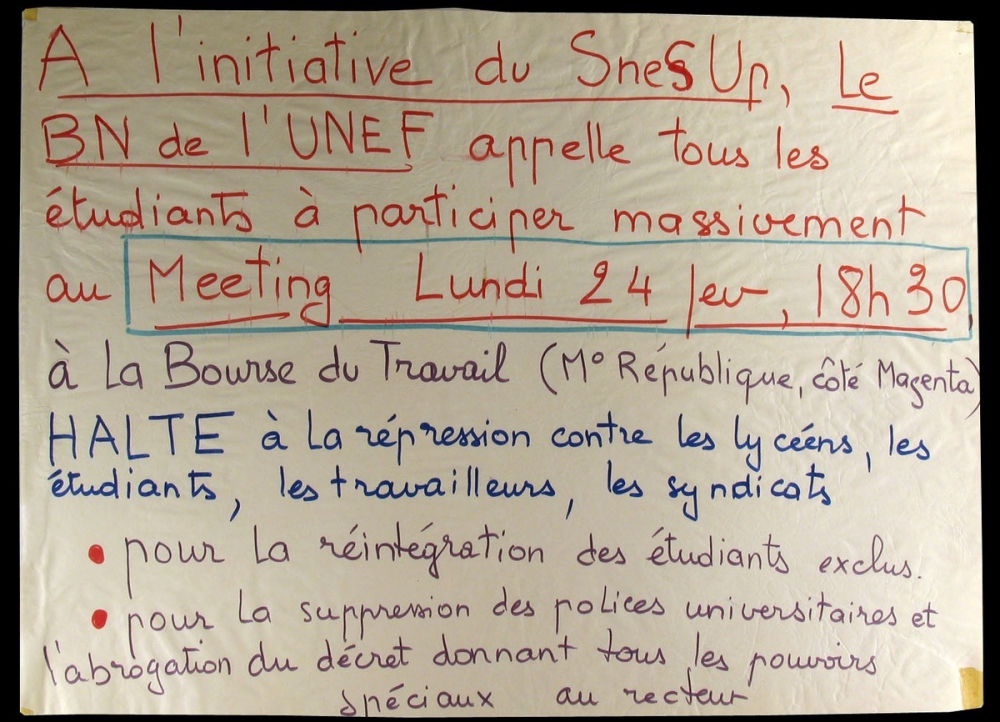 A l'initiative du SnesUp, Le
BN de l'UNEF appelle tous les
étudiants à participer massivement
au Meeting Lundi 24 fev, 18h30,
à La Bourse du Travail (M° République, côté Magenta)
HALTE à La répression contre les lycéens, les
étudiants, les travailleurs, les syndicats
• pour La réintégration des étudiants exclus.
• pour La suppression des polices universitaires et
l'abrogation du décret donnant tous les pouvoirs
spéciaux au recteur